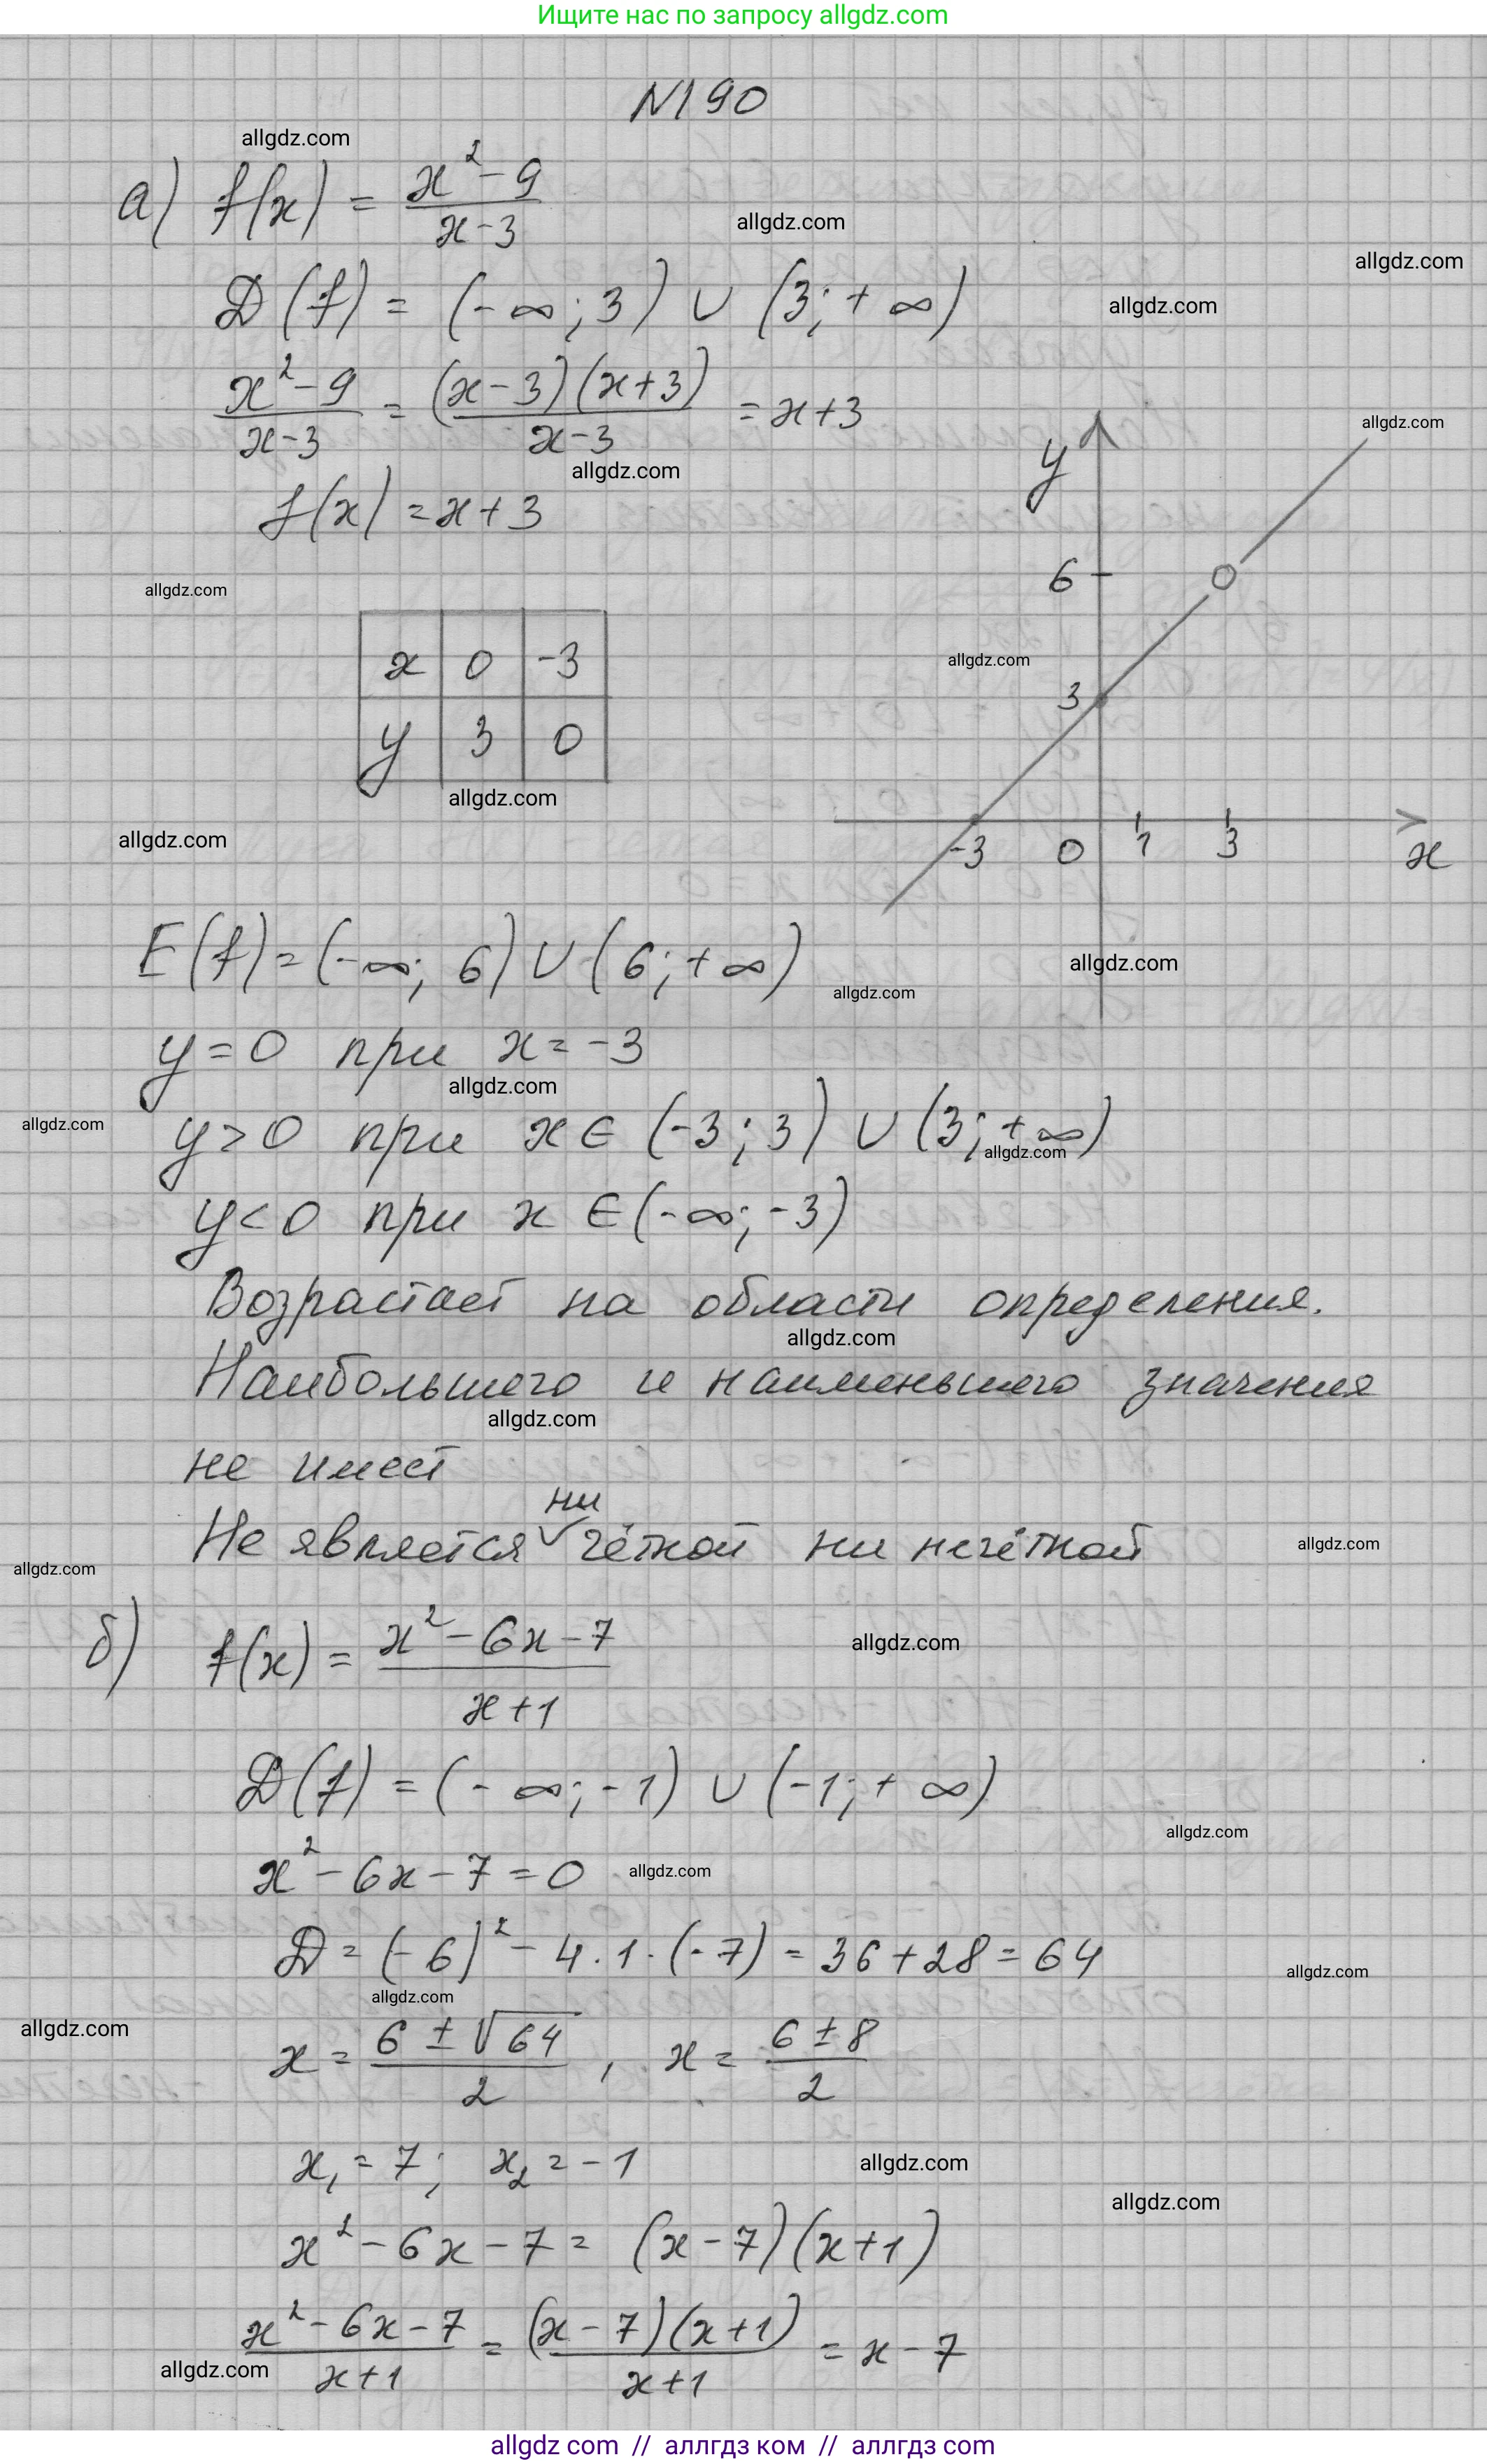 Ищите нас по запросу allgdz.com
N190
allgdz.com
а) f(x) = (x² - 9)/(x - 3)
allgdz.com
allgdz.com
D(f) = (-∞; 3) ∪ (3; +∞)
allgdz.com
(x² - 9)/(x - 3) = ((x - 3)(x + 3))/(x - 3) = x + 3
allgdz.com
allgdz.com
f(x) = x + 3
y
6
allgdz.com
x 0 -3
y 3 0
allgdz.com
3
allgdz.com
allgdz.com
-3 0 1 3 x
E(f) = (-∞; 6) ∪ (6; +∞)
allgdz.com
allgdz.com
y = 0 при x = -3
allgdz.com
allgdz.com
y > 0 при x ∈ (-3; 3) ∪ (3; +∞)
allgdz.com
y < 0 при x ∈ (-∞; -3)
Возрастает на области определения.
allgdz.com
Наибольшего и наименьшего значения
allgdz.com
не имеет
Не является ни чётной ни нечётной
allgdz.com
allgdz.com
б) f(x) = (x² - 6x - 7)/(x + 1)
allgdz.com
D(f) = (-∞; -1) ∪ (-1; +∞)
allgdz.com
x² - 6x - 7 = 0
allgdz.com
D = (-6)² - 4 · 1 · (-7) = 36 + 28 = 64
allgdz.com
allgdz.com
allgdz.com
x = (6 ± √64)/2 , x = (6 ± 8)/2
x₁ = 7; x₂ = -1
allgdz.com
allgdz.com
x² - 6x - 7 = (x - 7)(x + 1)
(x² - 6x - 7)/(x + 1) = ((x - 7)(x + 1))/(x + 1) = x - 7
allgdz.com
allgdz com // аллгдз ком // аллгдз com